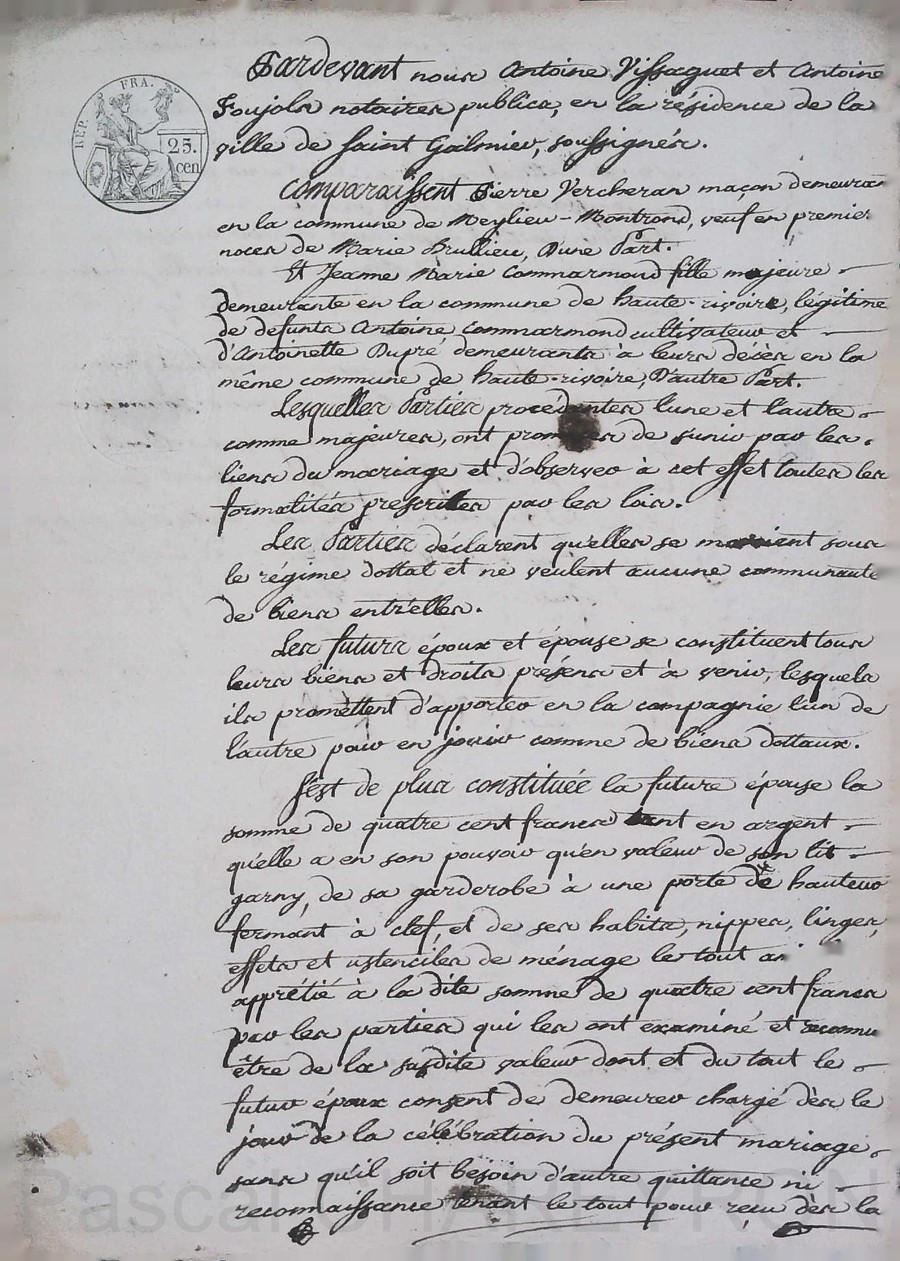 REP. FRA.
25.
cen
Pardevant nous Antoine Vissaguet et Antoine
Poujols notaires publics, en la résidence de la
ville de Saint Galmier, soussignés.
Comparaissent Pierre Vercheran maçon demeuran
en la commune de Meylieu-Montrond, veuf en premier
noces de Marie Brullieu, D'une Part.
Et Jeanne Marie Commarmond fille majeure
demeurante en la commune de haute-rivoire, légitime
de defunts Antoine Commarmond cultivateur et
d'Antoinette Dupré demeurants à leurs décès en la
même commune de haute-rivoire, D'autre Part.
Lesquelles Parties procédantes l'une et l'autre
comme majeures, ont promises de s'unir par les
liens du mariage et d'observer à cet effet toutes les
formalités prescrites par les lois.
Les Parties déclarent qu'elles se marient sous
le régime dottal et ne veulent aucune communauté
de biens entr'elles.
Les futurs époux et épouse se constituent tous
leurs biens et droits présens et à venir, lesquels
ils promettent d'apporter en la compagnie l'un de
l'autre pour en jouir comme de biens dottaux.
S'est de plus constituée la future épouse la
somme de quatre cent francs tant en argent
qu'elle a en son pouvoir qu'en valeur de son lit
garny, de sa garderobe à une porte de hauteur
fermant à clef, et de ses habits, nippes, linges,
effets et ustenciles de ménage le tout
apprétié à la dite somme de quatre cent francs
par les parties qui les ont examiné et reconnu
être de la susdite valeur dont et du tout le
futur époux consent de demeurer chargé dès le
jour de la célébration du présent mariage
sans qu'il soit besoin d'autre quittance ni
reconnaissance tenant le tout pour reçu dès la
Pascal CHAMBION